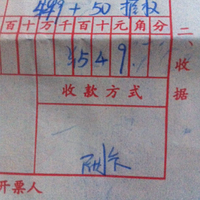 449 + 50 授权
百十万千百十元角分
¥549
收款方式
刷卡
开票人
二、收据